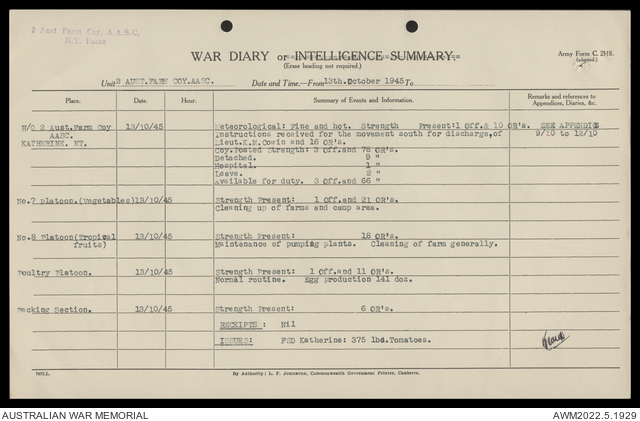 2 Aust Farm Coy. A.A.S.C.
N.T. Force
WAR DIARY or INTELLIGENCE SUMMARY.
(Erase heading not required.)
Army Form C. 2118.
(adapted.)
Unit 2 AUST.FARM COY.AASC. Date and Time.—From 13th.October 1945 To
Place. Date. Hour. Summary of Events and Information. Remarks and references to Appendices, Diaries, &c.
H/Q 2 Aust.Farm Coy 13/10/45 Meteorological: Fine and hot. Strength Present:1 Off.& 10 OR's. SEE APPENDIX
AASC. Instructions received for the movement south for discharge,of 9/10 to 12/10
KATHERINE. NT. Lieut.K.M.Cowin and 16 OR's.
Coy.Posted Strength: 3 Off.and 78 OR's.
Detached. 9 "
Hospital. 1 "
Leave. 2 "
Available for duty. 3 Off.and 66 "
No.7 Platoon.(Vegetables)13/10/45 Strength Present: 1 Off.and 21 OR's.
Cleaning up of farms and camp area.
No.8 Platoon(Tropical 13/10/45 Strength Present: 18 OR's.
fruits) Maintenance of pumping plants. Cleaning of farm generally.
Poultry Platoon. 13/10/45 Strength Present: 1 Off.and 11 OR's.
Normal routine. Egg production 141 doz.
Packing Section. 13/10/45 Strength Present: 6 OR's.
RECEIPTS : Nil
ISSUES: FSD Katherine: 375 lbs.Tomatoes.
By Authority: L. F. Johnston, Commonwealth Government Printer, Canberra.
AUSTRALIAN WAR MEMORIAL AWM2022.5.1929